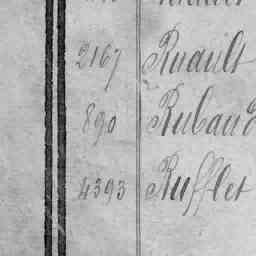 2167 Ruault
890 Rubaud
4393 Rufflet